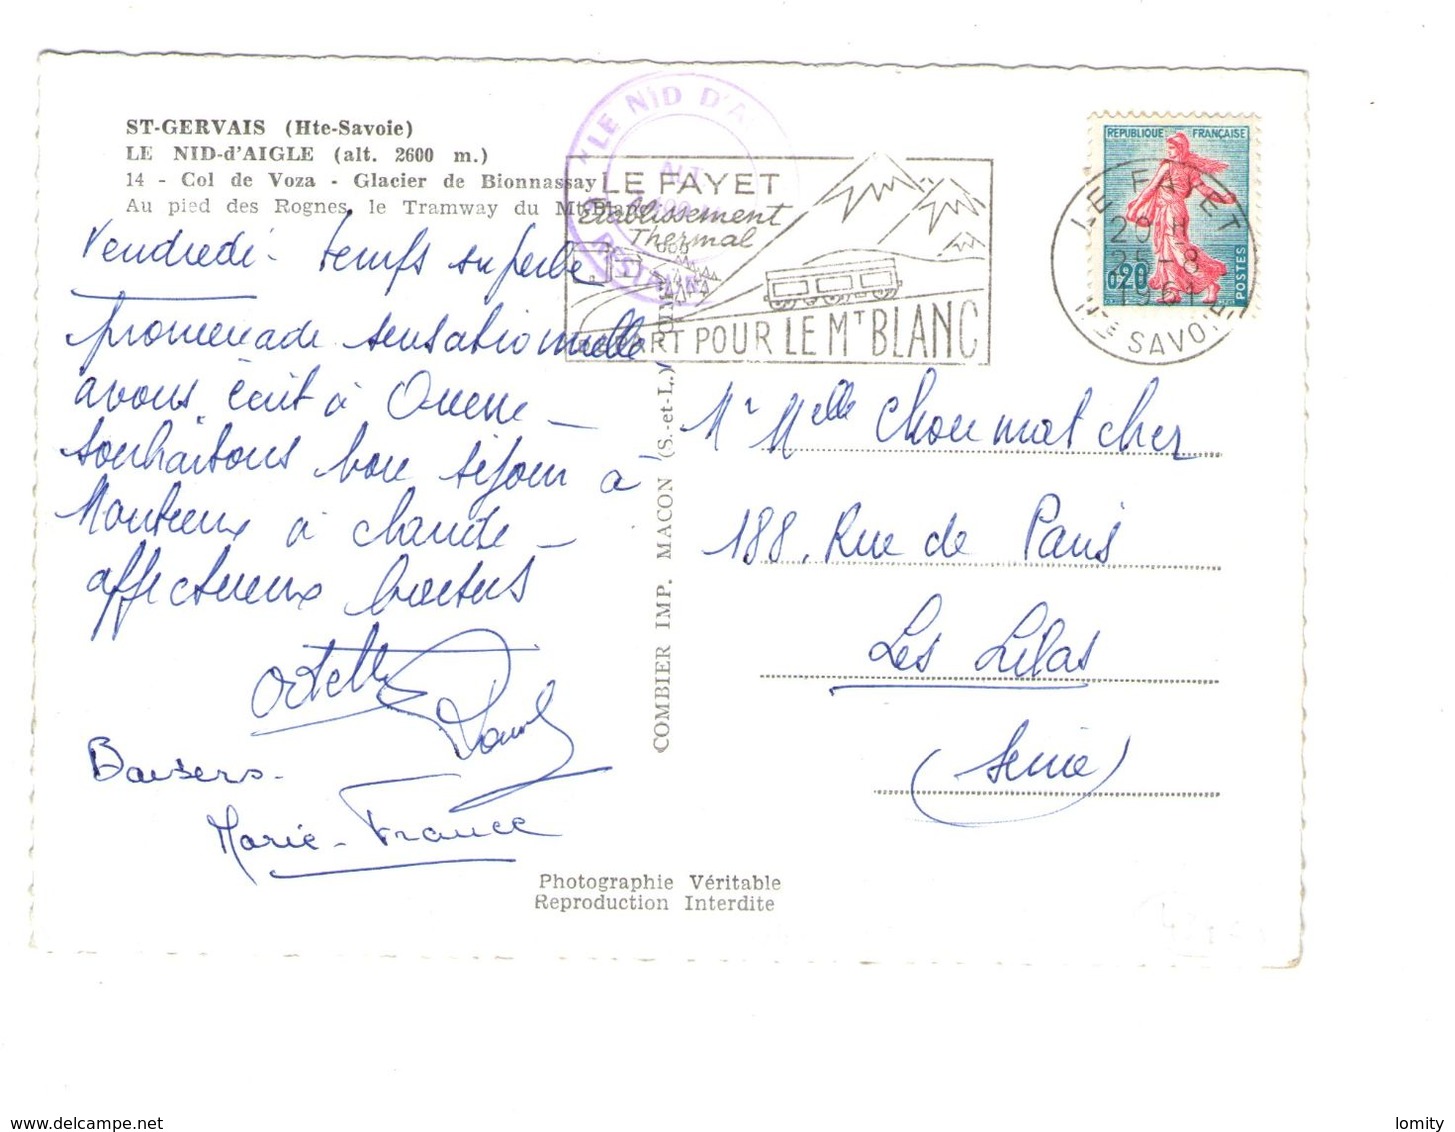 ST-GERVAIS (Hte-Savoie)
LE NID-d'AIGLE (alt. 2600 m.)
14 - Col de Voza - Glacier de Bionnassay
Au pied des Rognes, le Tramway du Mt-Blanc
"LE NID D'A
ALT.
LE FAYET
Etablissement
Thermal
DEPART POUR LE MT BLANC
REPUBLIQUE FRANÇAISE
0,20
POSTES
LE FAYET
20 H
25-8
1961
HTE SAVOIE
Vendredi - temps superbe
promenade sensationnelle
avons écrit à
souhaitons bon séjour à
à Claude -
affectueux baisers
Baisers -
Marie-France
COMBIER IMP. MACON (S.-et-L.)
Mr Melle Choumatcher
188, Rue de Paris
Les Lilas
(Seine)
Photographie Véritable
Reproduction Interdite
www.delcampe.net
lomity